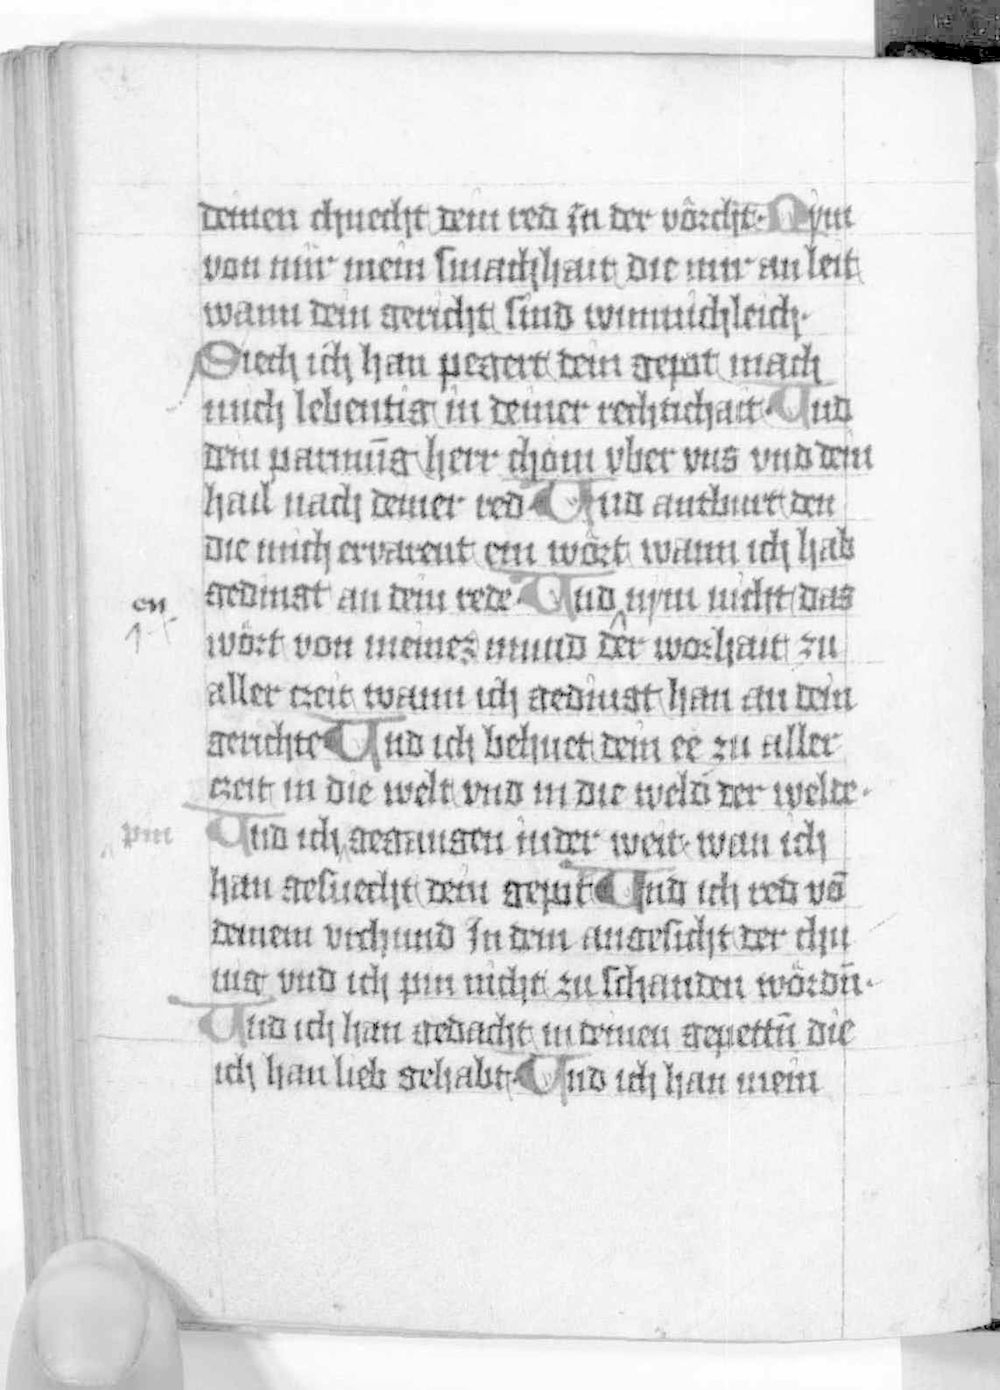 deinen chnecht dein red in der vörcht. Nym
von mir mein smachhait die mir an leit
wann dein gericht sind wunnichleich.
Siech ich han pegert dein gepot mach
mich lebentig in deiner rechtichait. Und
dein parmūg herr chöm vber vns vnd dein
hail nach deiner red. Und antburt den
die mich ervarent ein wört wann ich hab
gedingt an dein rede. Und nym nicht das
en wört von meinez mund der worhait zu
aller czeit wann ich gedingt han an dein
gerichte. Und ich behuet dein ee zu aller
czeit in die welt vnd in die weld der welde.
pin Und ich gegangen in der weit wan ich
han gesuecht dein gepot. Und ich red vō
deinem vrchund In dem angesicht der chu
nig vnd ich pin nicht zu schanden wördn̄.
Und ich han gedacht in deinen gepettn̄ die
ich han lieb gehabt. Und ich han mein